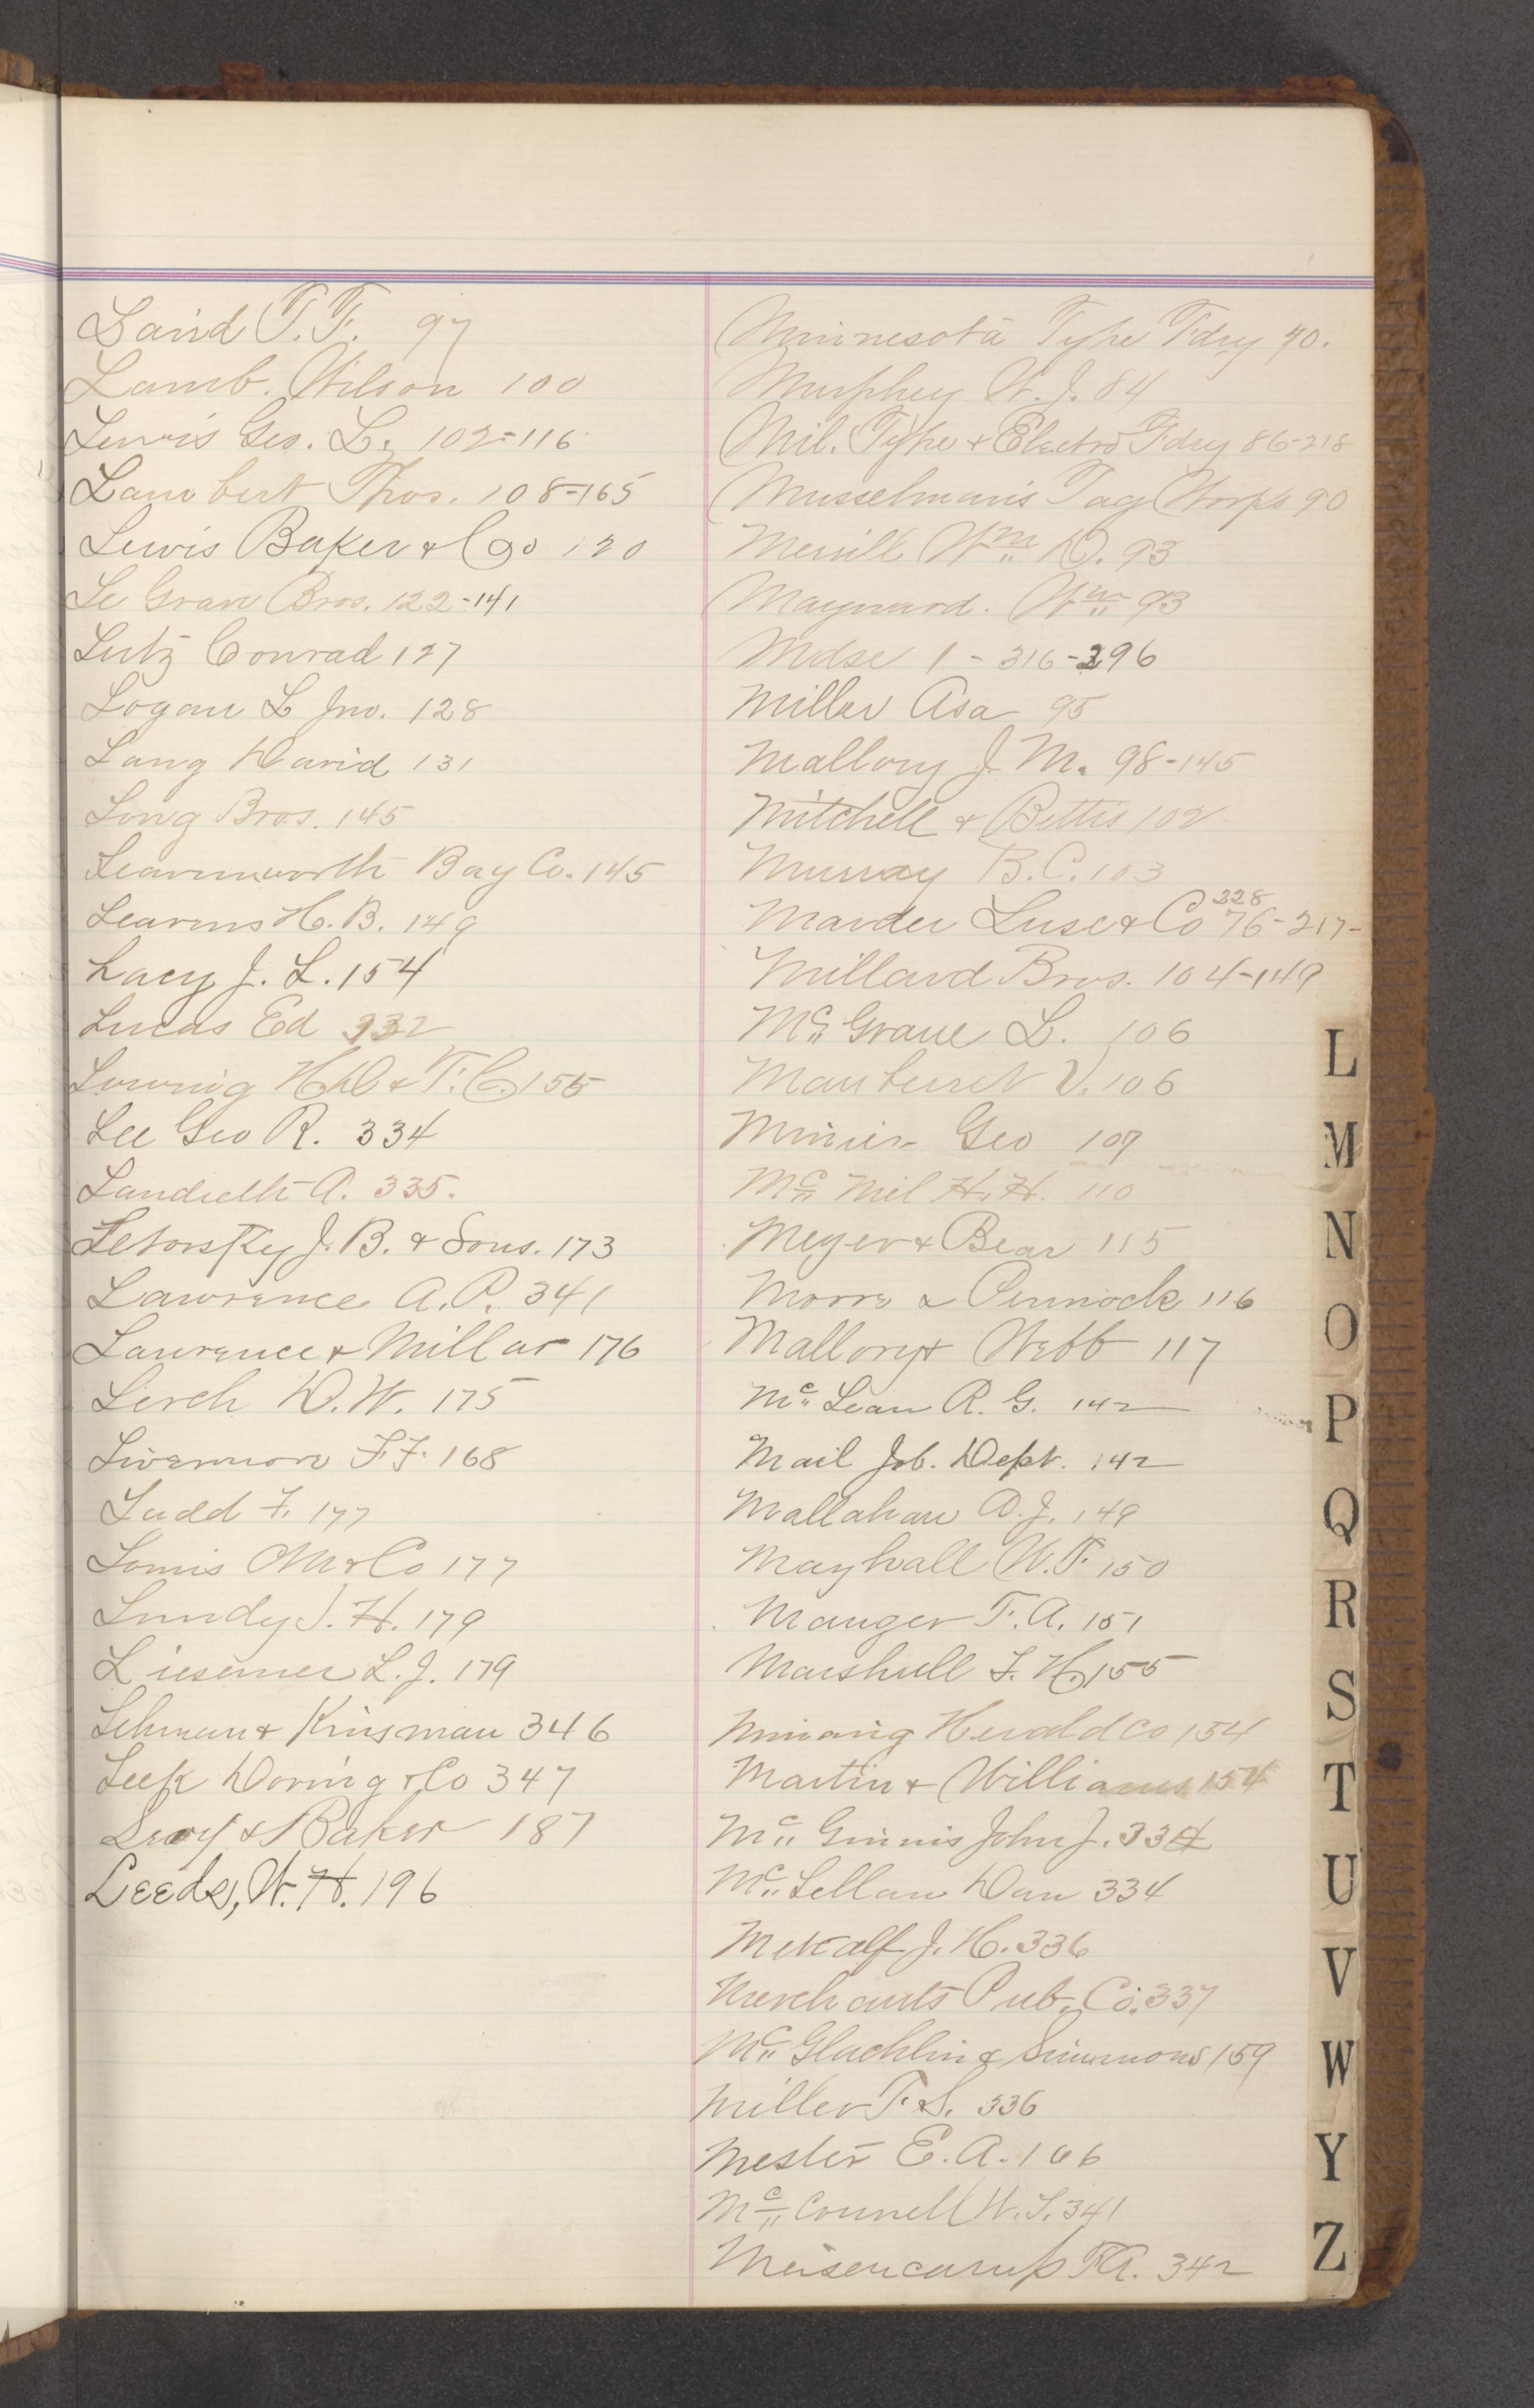 Laird T. F. 97
Lamb. Wilson 100
Lewis Geo. L. 102-116
Lambert Thos. 108-165
Lewis Baker & Co 120
Le Grave Bros. 122-141
Lutz Conrad 127
Logan L Jno. 128
Lang David 131
Long Bros. 145
Leavenworth Bag Co. 145
Leavens H. B. 149
Lacy J. L. 154
Lucas Ed 332
Lowrig H D & T. C. 155
Lee Geo R. 334
Landreth A. 335.
Letorsky J. B. & Sons. 173
Lawrence A. P. 341
Lawrence & Millar 176
Lerch D. W. 175
Livermore F. F. 168
Ladd F. 177
Lomis & Co 177
Lundy J. H. 179
Liesemer L. J. 179
Lehman & Kinsman 346
Leek Doring & Co 347
Levy & Baker 187
Leeds, W. H. 196
Minnesota Type Fdry 40.
Murphey W. J. 84
Mil. Type & Electro Fdry 86-218
Musselman's Tag Works 90
Merrill Wm D. 93
Maynard. Wm 93
Mdse 1 - 316-396
Miller Asa 95
Mallory J. M. 98-145
Mitchell & Bettis 102
Murray B. C. 103
328
Marder Luse & Co 76-217-
Millard Bros. 104-149
Mc Grane L. 106
Mauberret V. 106
Minier Geo 107
Mc Neil H. H. 110
Meyer & Bear 115
Morre & Pennock 116
Mallory & Webb 117
Mc Lean R. G. 142
Mail Job. Dept. 142
Mallahan A. J. 149
Mayhall W. F. 150
Manger F. A. 151
Marshall F. H. 155
Mining Herald Co 154
Martin & Williams 154
Mc Ginnis John J. 334
Mc Lellan Dan 334
Metcalf J. H. 336
Merchants Pub. Co. 337
Mc Glachlin & Simmons 159
Miller F. S. 336
Mester E. A. 166
Mc Connell W. S. 341
Meisencamp F. A. 342
L
M
N
O
P
Q
R
S
T
U
V
W
Y
Z